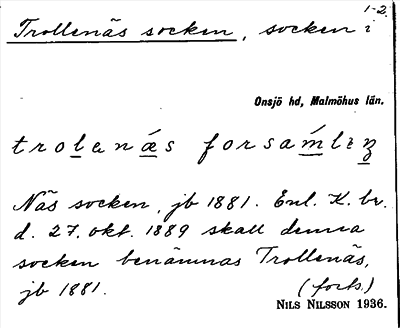 1-2.
Trollenäs socken, socken i
Onsjö hd, Malmöhus län.
trolenǽs forsamlıŋ
Näs socken, jb 1881. Enl. K. br.
d. 27. okt. 1889 skall denna
socken benämnas Trollenäs,
jb 1881. (forts.)
NILS NILSSON 1936.